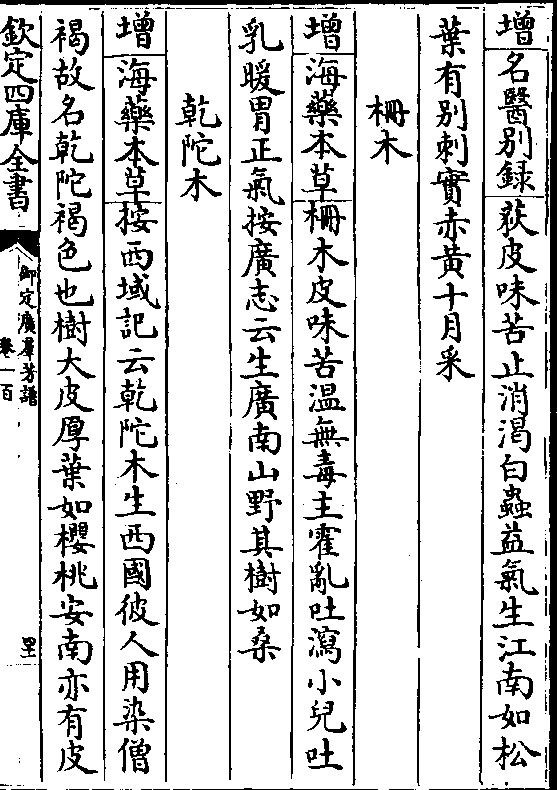 增名醫別録荻皮味苦止消渴白蟲益氣生江南如松
葉有別刺實赤黄十月采
柵木
增海藥本草柵木皮味苦温無毒主霍亂吐瀉小兒吐
乳暖胃正氣按廣志云生廣南山野其樹如桑
乾陀木
增海藥本草按西域記云乾陀木生西國彼人用染僧
褐故名乾陀褐色也樹大皮厚葉如櫻桃安南亦有皮
欽定四庫全書
御定廣羣芳譜
卷一百